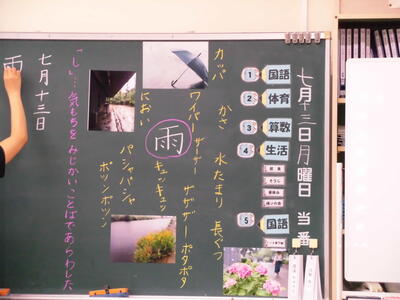 七月十三日月曜日 当番
1 国語
2 体育
3 算数
4 生活
5 国語
カッパ かさ 水たまり 長ぐつ
ワイパー ザーザー ザザザー ポタポタ
キュッキュッ
雨
におい
パシャパシャ
ポツンポツン
「し」…気もちをみじかいことばであらわした
七月十三日
雨